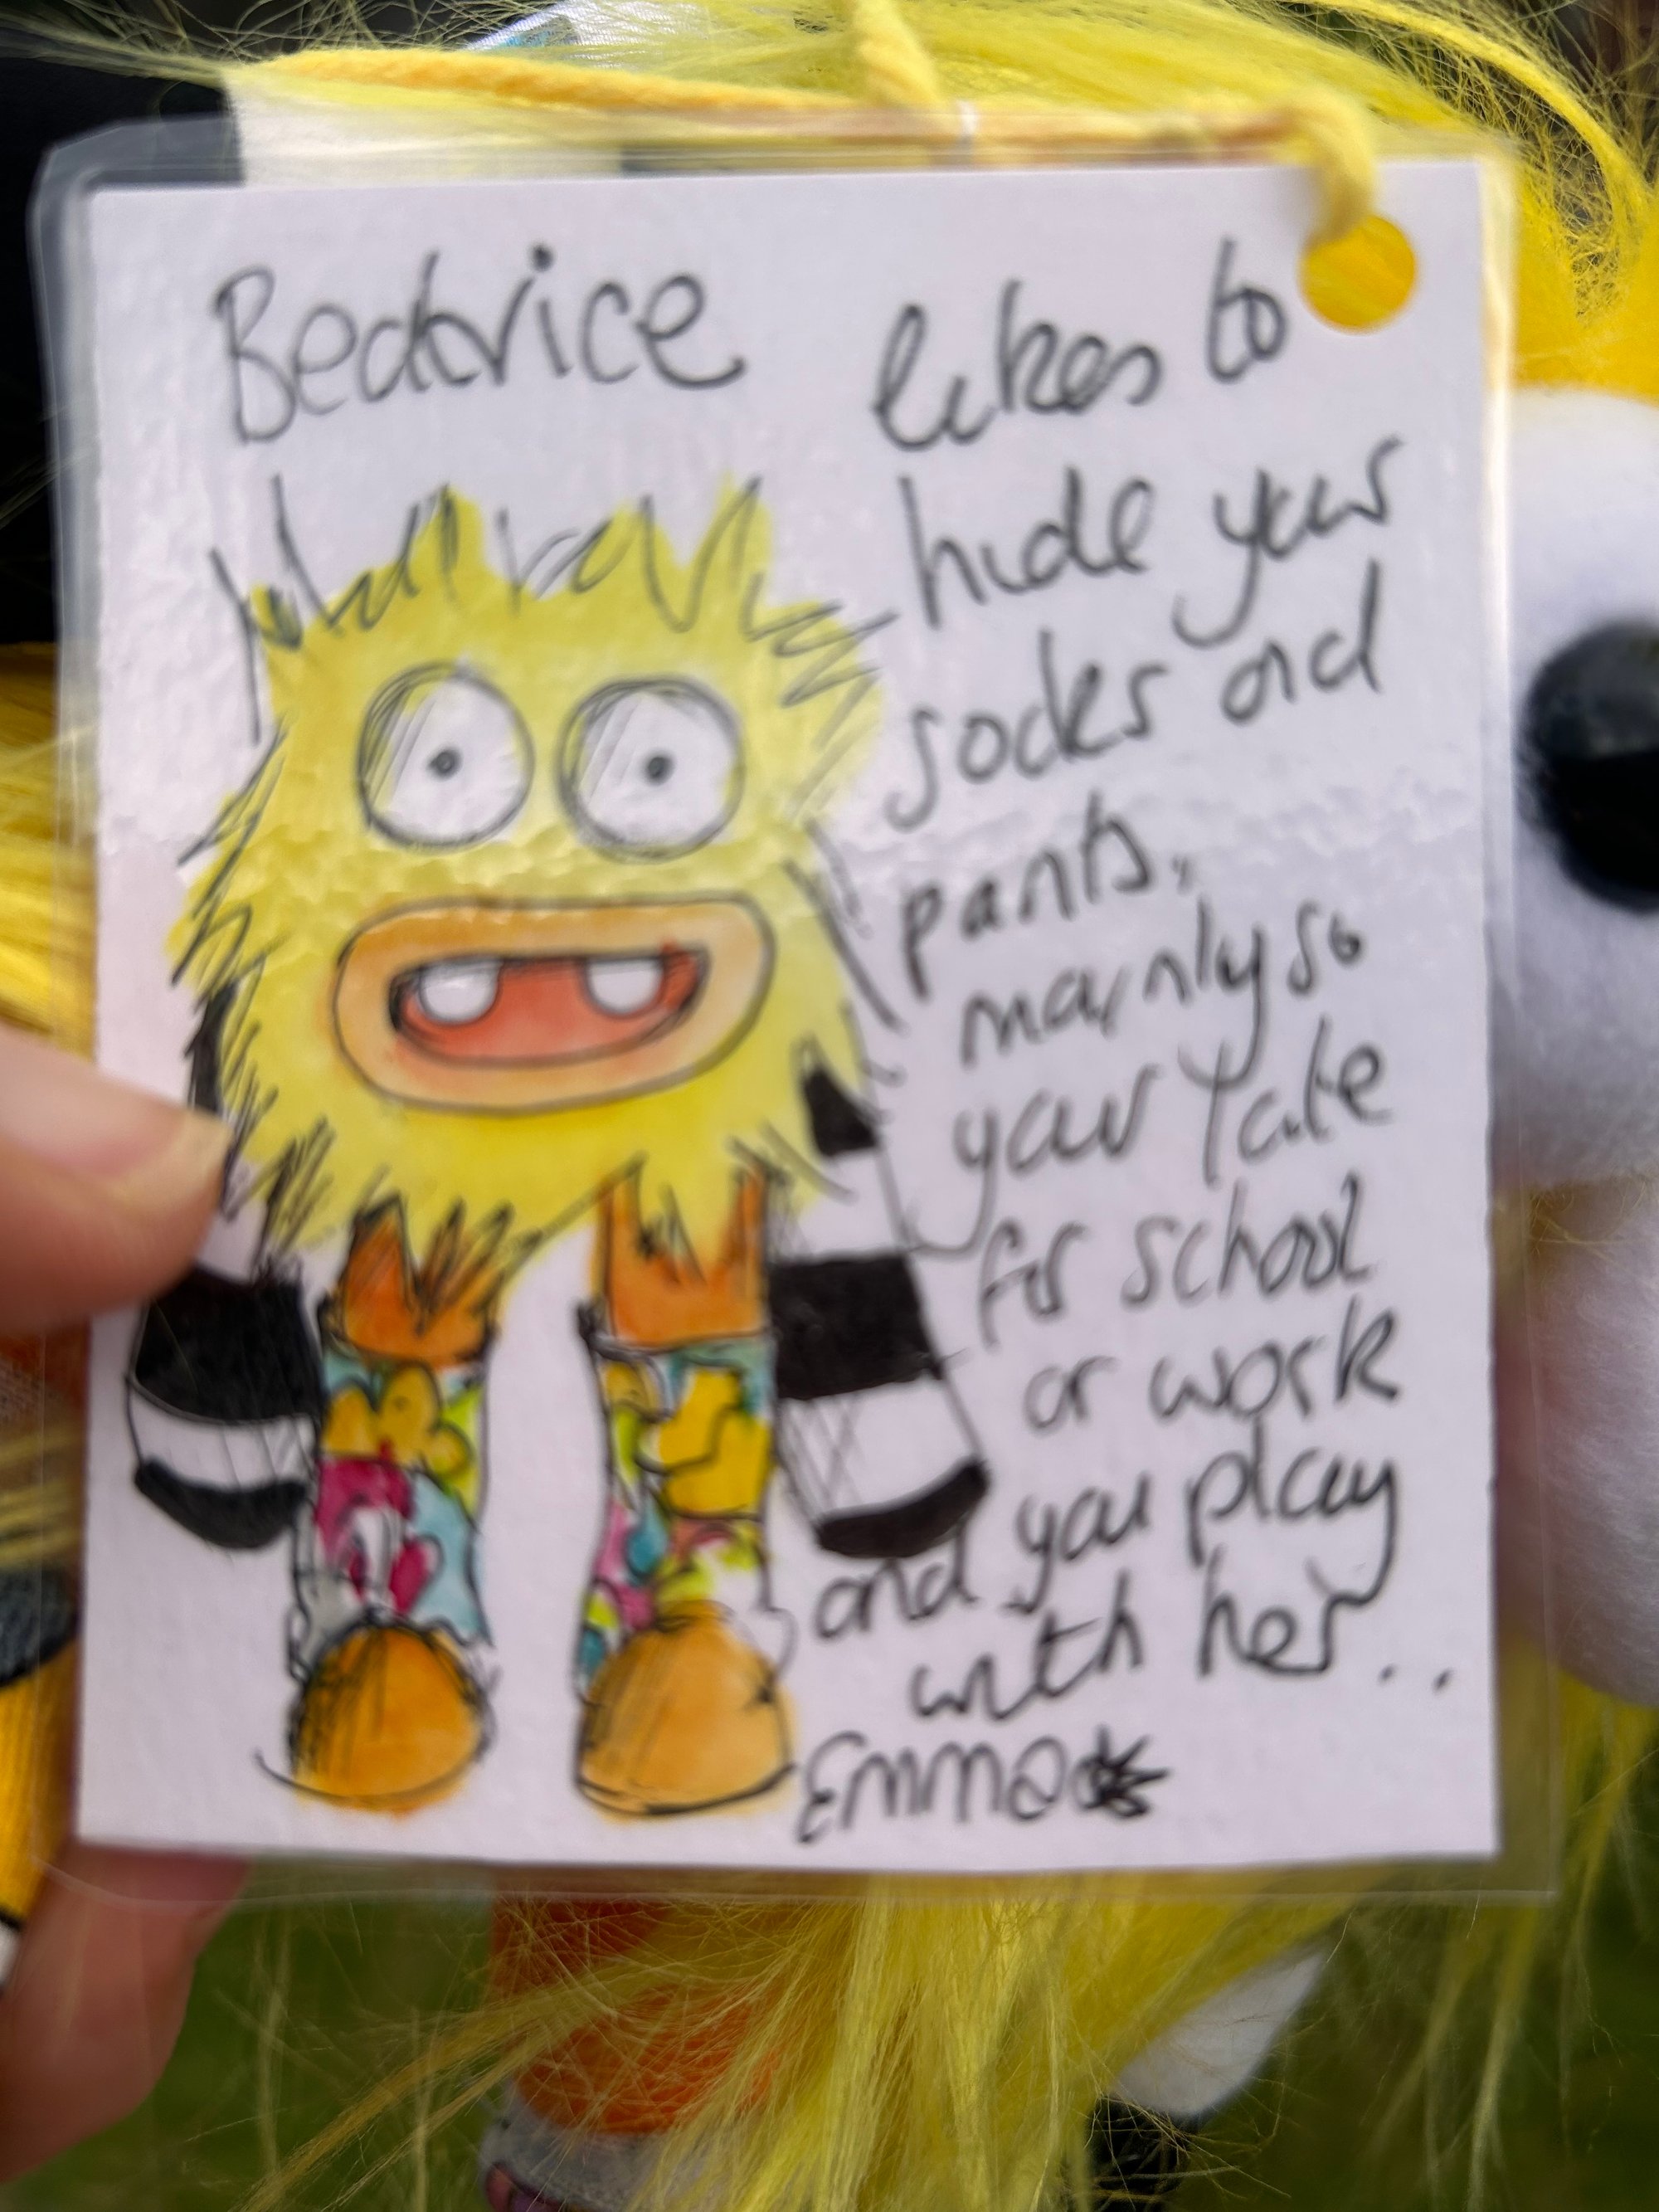 Beatrice
likes to
hide your
socks and
pants,
mainly so
your late
for school
or work
and you play
with her..
Emma